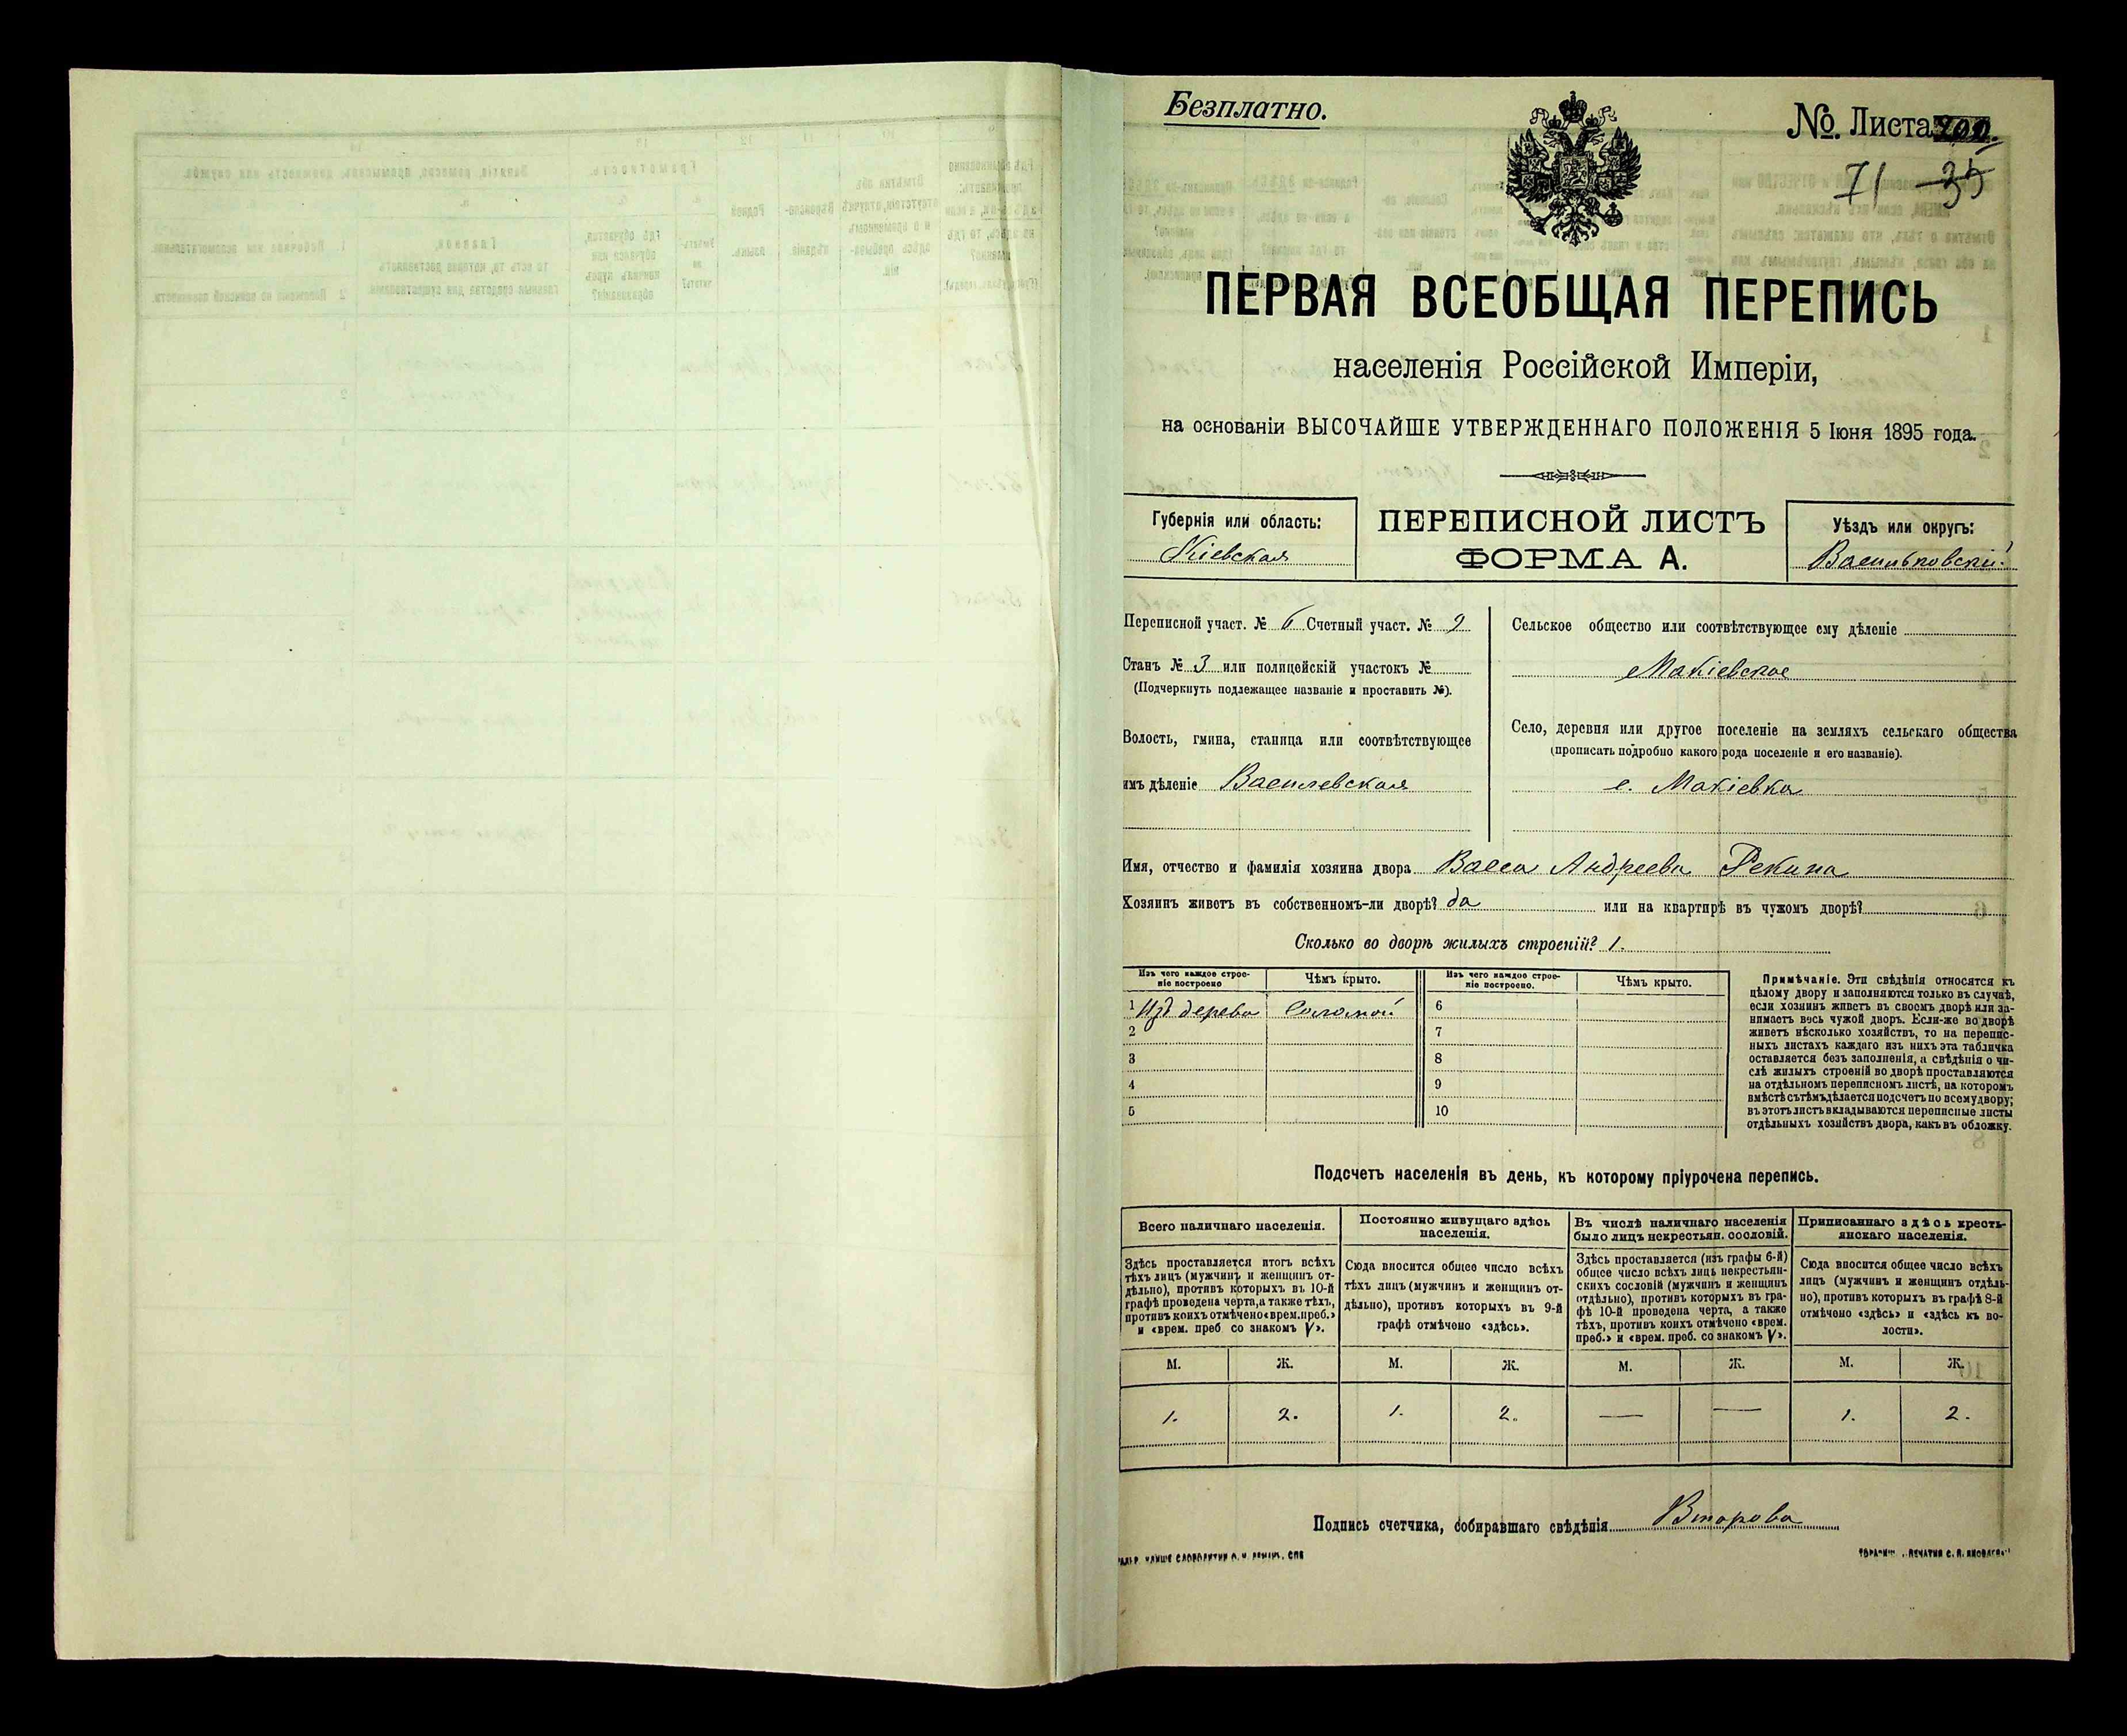 Безплатно.
№. Листа 200.
71 35
ПЕРВАЯ ВСЕОБЩАЯ ПЕРЕПИСЬ
населенія Россійской Имперіи,
на основаніи ВЫСОЧАЙШЕ УТВЕРЖДЕННАГО ПОЛОЖЕНІЯ 5 Іюня 1895 года.
Губернія или область:
Кіевская
ПЕРЕПИСНОЙ ЛИСТЪ
ФОРМА А.
Уѣздъ или округъ:
Васильковскій
Переписной участ. № 6 Счетный участ. № 9
Станъ № 3 или полицейскій участокъ №
(Подчеркнуть подлежащее названіе и проставить №).
Волость, гмина, станица или соотвѣтствующее
имъ дѣленіе Василевская
Сельское общество или соотвѣтствующее ему дѣленіе
Макіевское
Село, деревня или другое поселеніе на земляхъ сельскаго общества
(прописать подробно какого рода поселеніе и его названіе).
с. Макіевка
Имя, отчество и фамилія хозяина двора Васса Андреева Рекина
Хозяинъ живетъ въ собственномъ-ли дворѣ? да или на квартирѣ въ чужомъ дворѣ?
Сколько во дворѣ жилыхъ строеній? 1.
Изъ чего каждое строе-
ніе построено
Чѣмъ крыто.
Изъ чего каждое строе-
ніе построено.
Чѣмъ крыто.
1 Изъ дерева Соломой 6
2 7
3 8
4 9
5 10
Примѣчаніе. Эти свѣдѣнія относятся къ
цѣлому двору и заполняются только въ случаѣ,
если хозяинъ живетъ въ своемъ дворѣ или за-
нимаетъ весь чужой дворъ. Если-же во дворѣ
живетъ нѣсколько хозяйствъ, то на перепис-
ныхъ листахъ каждаго изъ нихъ эта табличка
оставляется безъ заполненія, а свѣдѣнія о чи-
слѣ жилыхъ строеній во дворѣ проставляются
на отдѣльномъ переписномъ листѣ, на которомъ
вмѣстѣ съ тѣмъ дѣлается подсчетъ по всему двору;
въ этотъ листъ вкладываются переписные листы
отдѣльныхъ хозяйствъ двора, какъ въ обложку.
Подсчетъ населенія въ день, къ которому пріурочена перепись.
Всего наличнаго населенія.
Здѣсь проставляется итогъ всѣхъ
тѣхъ лицъ (мужчинъ и женщинъ от-
дѣльно), противъ которыхъ въ 10-й
графѣ проведена черта, а также тѣхъ,
противъ коихъ отмѣчено «врем. преб.»
и «врем. преб со знакомъ V».
Постоянно живущаго здѣсь
населенія.
Сюда вносится общее число всѣхъ
тѣхъ лицъ (мужчинъ и женщинъ от-
дѣльно), противъ которыхъ въ 9-й
графѣ отмѣчено «здѣсь».
Въ числѣ наличнаго населенія
было лицъ некрестьян. сословій.
Здѣсь проставляется (изъ графы 6-й)
общее число всѣхъ лицъ некрестьян-
скихъ сословій (мужчинъ и женщинъ
отдѣльно), противъ которыхъ въ гра-
фѣ 10-й проведена черта, а также
тѣхъ, противъ коихъ отмѣчено «врем.
преб.» и «врем. преб. со знакомъ V».
Приписаннаго здѣсь кресть-
янскаго населенія.
Сюда вносится общее число всѣхъ
лицъ (мужчинъ и женщинъ отдѣль-
но), противъ которыхъ въ графѣ 8-й
отмѣчено «здѣсь» и «здѣсь къ во-
лости».
М. Ж. М. Ж. М. Ж. М. Ж.
1. 2. 1. 2. — — 1. 2.
Подпись счетчика, собиравшаго свѣдѣнія Второва